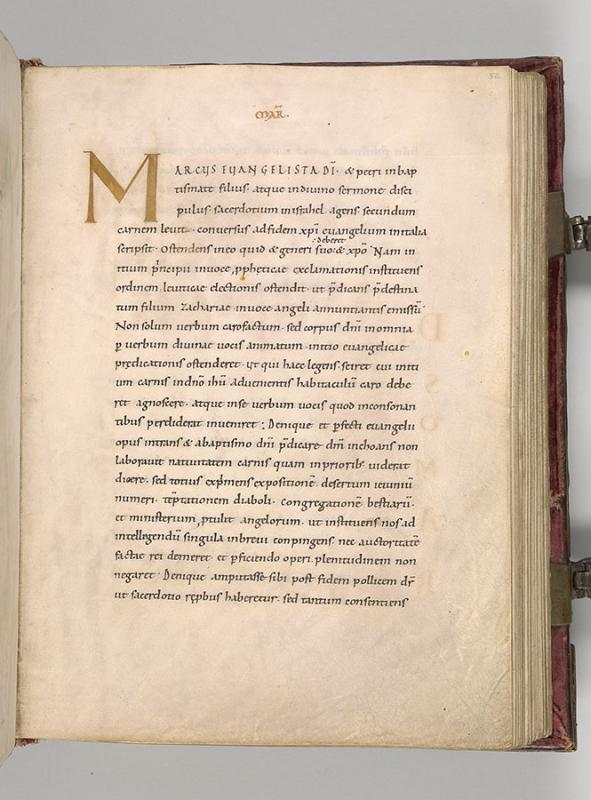 52
MAR̅.
MARCUS EUANGELISTA DĪ. & petri inbap
tismate filius. atque indivino sermone disci
pulus. sacerdotium inisrahel agens secundum
carnem levita. conversus adfidem xp̅i euangelium initalia
scripsit. Ostendens ineo quid & generi suo: deberet & xp̅o. Nam in
itium p̅ncipii invoce ꝓpheticae exclamationis instituens
ordinem leviticae electionis ostendit. ut p̅dicans p̅destina
tum filium Zachariae invoce angeli annuntiantis emissū
Non solum verbum carofactum. sed corpus dn̅i inomnia
ꝑ verbum divinae vocis animatum. initio euangelicae
predicationis ostenderet. ut qui haec legens sciret cui initi
um carnis indn̅o ih̅u advenientis habitaculū caro debe
ret agnoscere. atque inse verbum vocis quod inconsonan
tibus perdiderat inveniret: Denique et ꝑfecti euangelii
opus intrans & abaptismo dn̅i p̅dicare dm̅ inchoans non
laboravit nativitatem carnis quam inpriorib; viderat
dicere. sed totius exp̅mens expositionē. desertum ieiuniū
numeri. tēptationem diaboli. congregationē bestiarū.
et ministerium ꝓtulit angelorum. ut instituens nos ad
intellegendū singula inbrevi conpingens. nec auctoritatē
factae rei demeret. et ꝑficiendo operi plenitudinem non
negaret. Denique amputasse sibi post fidem pollicem dr̅
ut sacerdotio rep̅bus haberetur. sed tantum consentiens